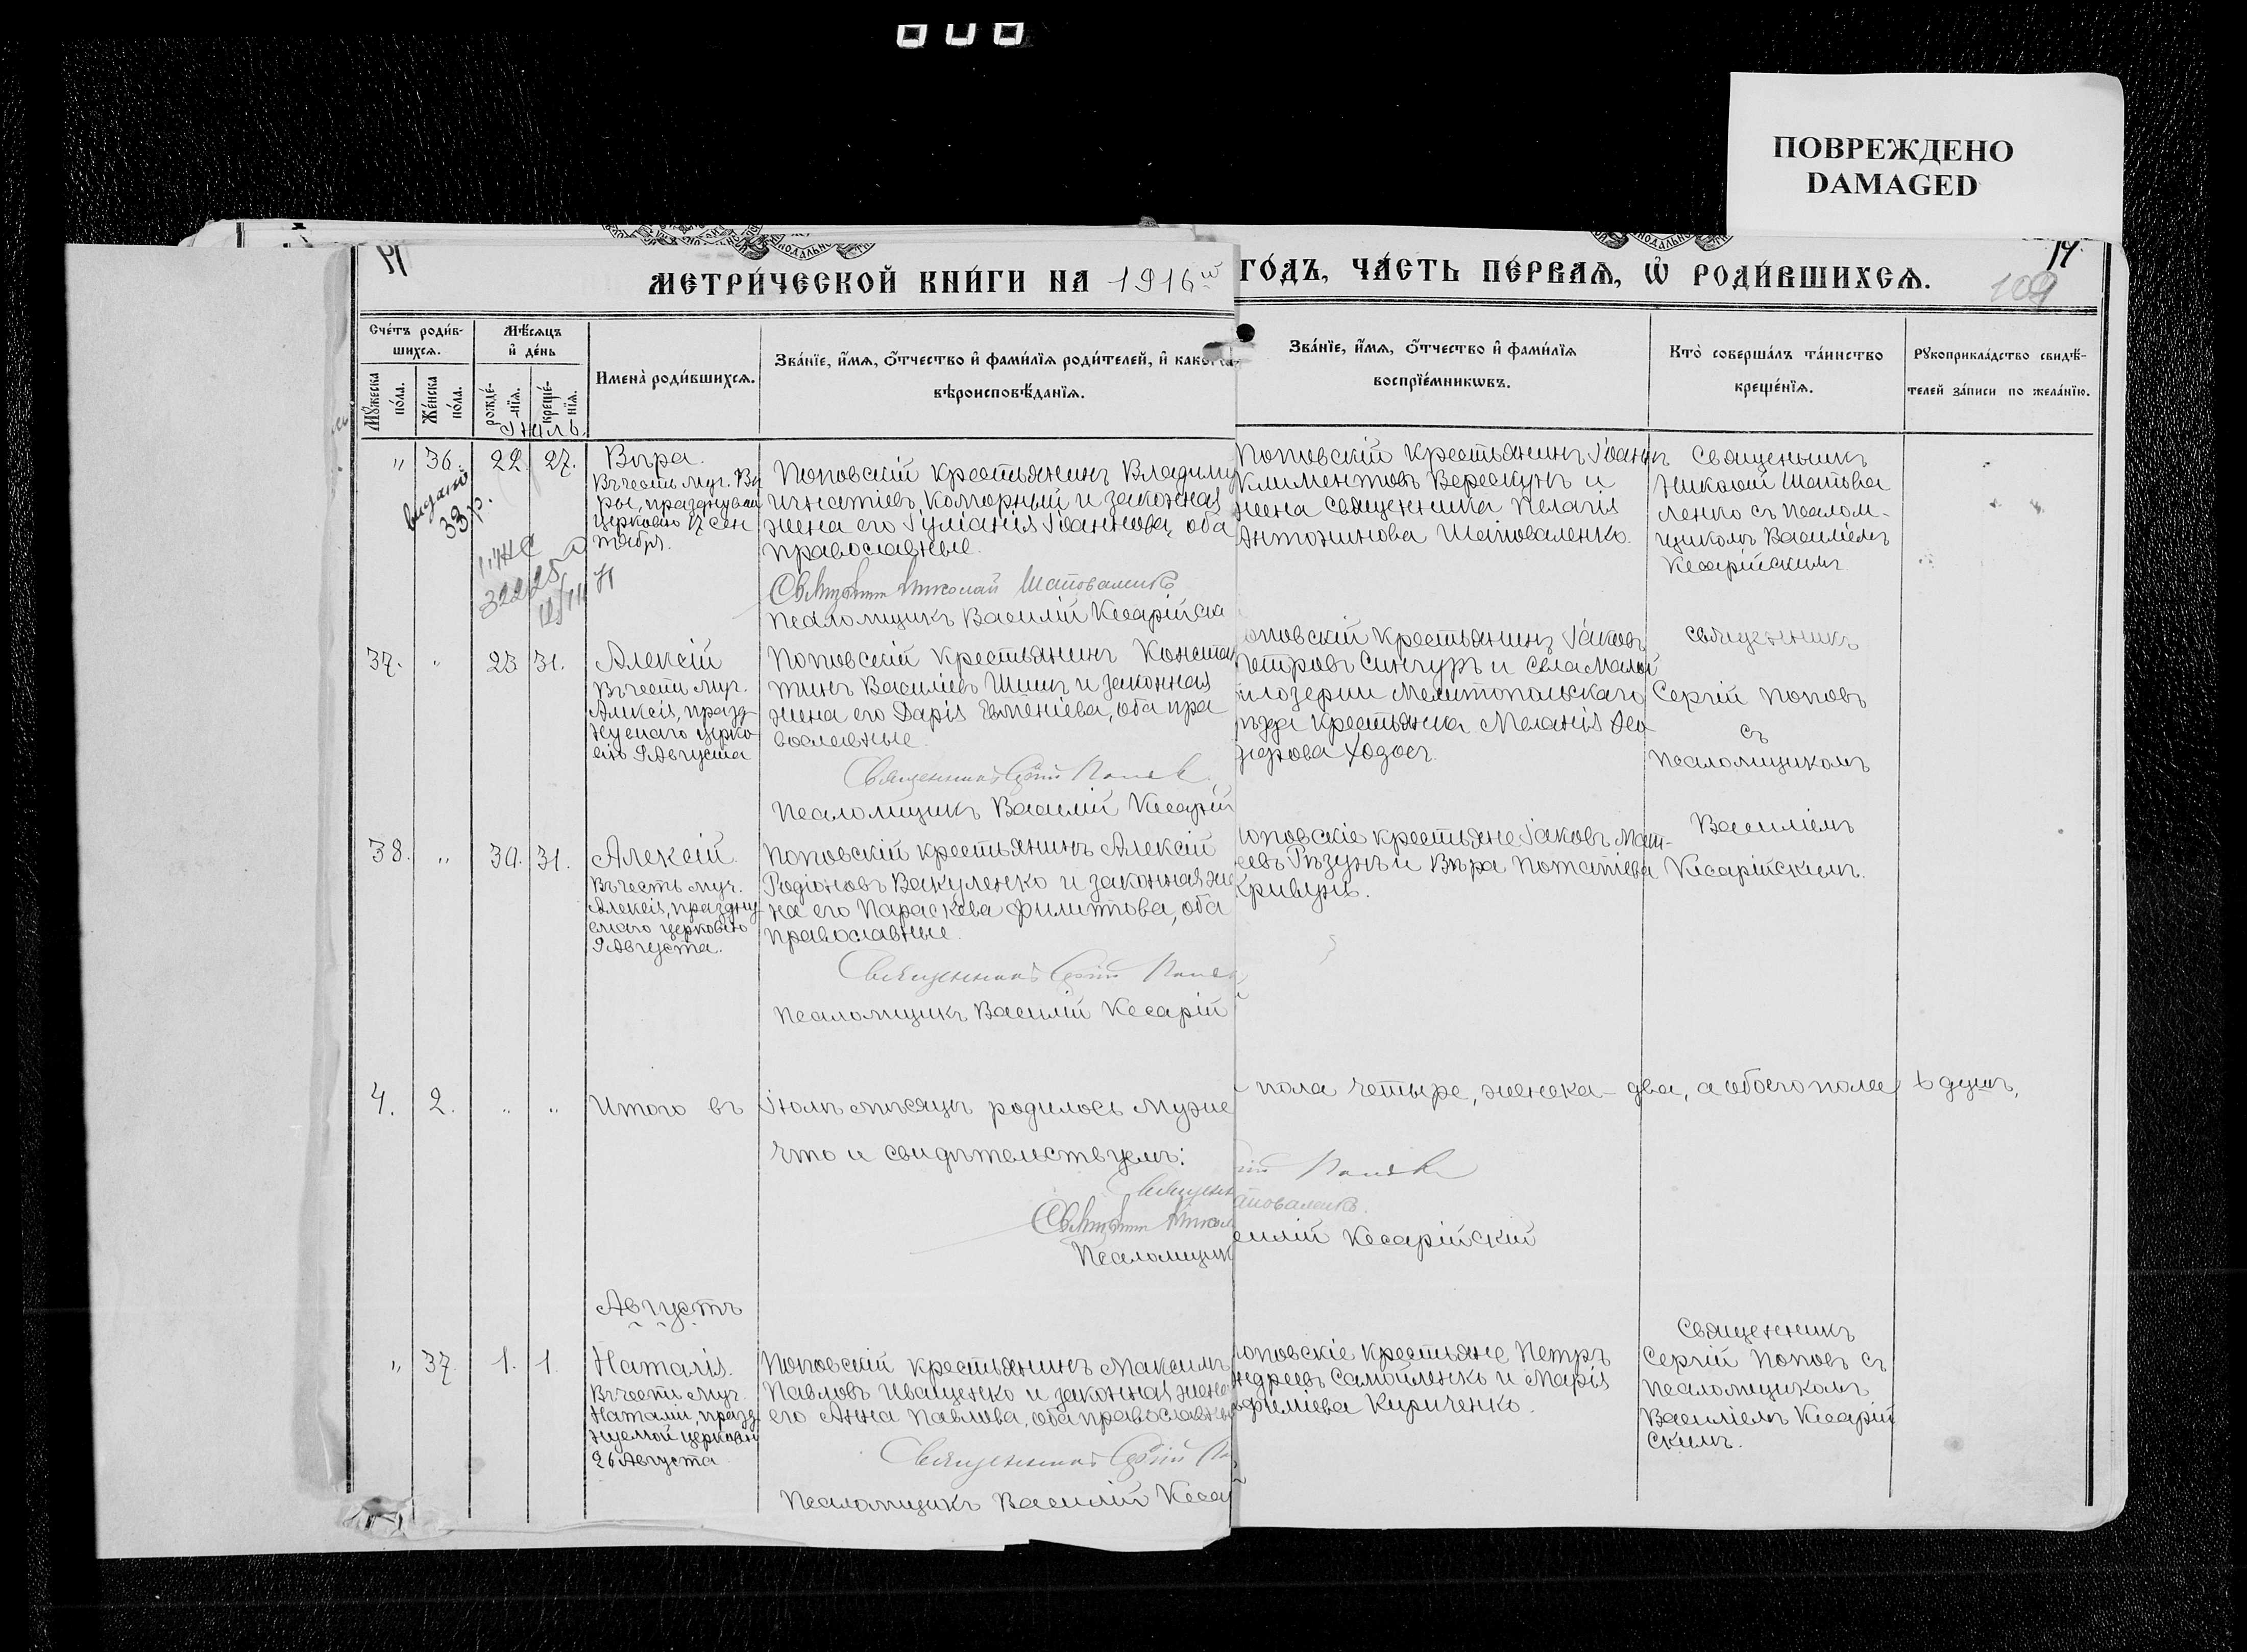 ПОВРЕЖДЕНО
DAMAGED
МЕТРИ́ЧЕСКОЙ КНИ́ГИ НА 1916й ГО́ДЪ, ЧА́СТЬ ПЕ́РВАѦ, Ѡ҆ РОДИ́ВШИХСѦ.
14
109
Сче́тъ роди́в-
шихсѧ.
Мѣ́сѧцъ
и҆ де́нь
Мꙋ́жеска по́ла.
Же́нска по́ла.
рожде́-нїѧ.
креще́-нїѧ.
Имена̀ роди́вшихсѧ.
Зва́нїе, и҆́мѧ, ѻ҆́тчество и҆ фами́лїѧ роди́телей, и҆
вѣроисповѣ́данїѧ.
Зва́нїе, и҆́мѧ, ѻ҆́тчество и҆ фами́лїѧ
воспрїе́мникѡвъ.
Кто̀ соверша́лъ та́инство
креще́нїѧ.
Рꙋкоприкла́дство свидѣ́-
телей за́писи по жела́нїю.
Іюль.
" 36. 22. 27. Вѣра.
Въ честь муч. Вѣ
ры, празднуемой
церковію 17 сен
тября.
выдано
33 р.
Поповскій крестьянинъ Владимі
Игнатіевъ Коморный и законная
жена его Іуліанія Іоаннова, оба
православные.
Священникъ Николай Шаповаленко
Псаломщикъ Василій Кесарійск
Поповскій крестьянинъ Іоаннъ
Климентовъ Верескунъ и
жена священника Пелагія
Антонинова Шаповаленко.
Священникъ
Николай Шапова
ленко съ псалом-
щикомъ Василіемъ
Кесарійскимъ
37. " 23 31. Алексій
Въ честь муч.
Алексія, празд-
нуемаго церко-
вію 9 Августа
Поповскій крестьянинъ Констан
тинъ Василіевъ Шишъ и законная
жена его Дарія Евменіева, оба пра
вославные.
Священникъ Сергій Поповъ
Псаломщикъ Василій Кесарій
оповскій крестьянинъ Іаковъ
Петровъ Синчуръ и села Малой
Бѣлозерки Мелитопольскаго
уѣзда крестьянка Меланія Ѳео
дорова Ходосъ.
Священникъ
Сергій Поповъ
съ
псаломщикомъ
Василіемъ
Кесарійскимъ.
38. " 30. 31. Алексій.
Въ честь муч.
Алексія, праздну-
емаго церковію
9 Августа.
Поповскій крестьянинъ Алексій
Родіоновъ Вакуленко и законная же
на его Параскева Филиппова, оба
православные.
Священникъ Сергій Попов
Псаломщикъ Василій Кесарій
оповскіе крестьяне Іаковъ Мат-
еевъ Рѣзунъ и Вѣра Потапіева
Кривунь.
4. 2. " " Итого въ Іюлѣ мѣсяцѣ родилось муже пола четыре, женска - два, а обоего пола 6 душъ,
что и свидѣтельствуемъ:
Священ ій Поповъ
Священникъ Никол аповаленко.
Псаломщик силій Кесарійскій
Августъ
" 37. 1. 1. Наталія.
Въ честь муч.
Наталіи, празд-
нуемой церковію
26 Августа
Поповскій крестьянинъ Максимъ
Павловъ Иващенко и законная жена
его Анна Павлова, оба православны
Священникъ Сергій По
Псаломщикъ Василій Кеса
оповскіе крестьяне Петръ
ндреевъ Самойленко и Марія
вфиміева Кириченко.
Священникъ
Сергій Поповъ съ
псаломщикомъ
Василіемъ Кесарій
скимъ.